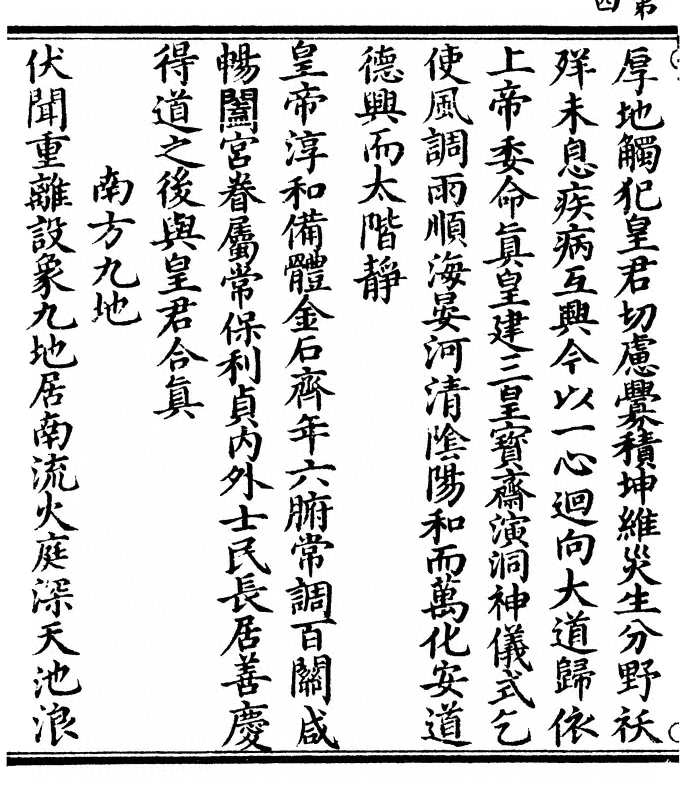 第
四
厚地觸犯皇君切慮釁積坤維災生分野祅
殃未息疾病互興今以一心迴向大道歸依
上帝委命眞皇建三皇寶齋演洞神儀式乞
使風調雨順海晏河清陰陽和而萬化安道
德興而太階靜
皇帝淳和備體金石齊年六腑常調百關咸
暢闔宮眷屬常保利貞內外士民長居善慶
得道之後與皇君合眞
南方九地
伏聞重離設象九地居南流火庭深天池浪